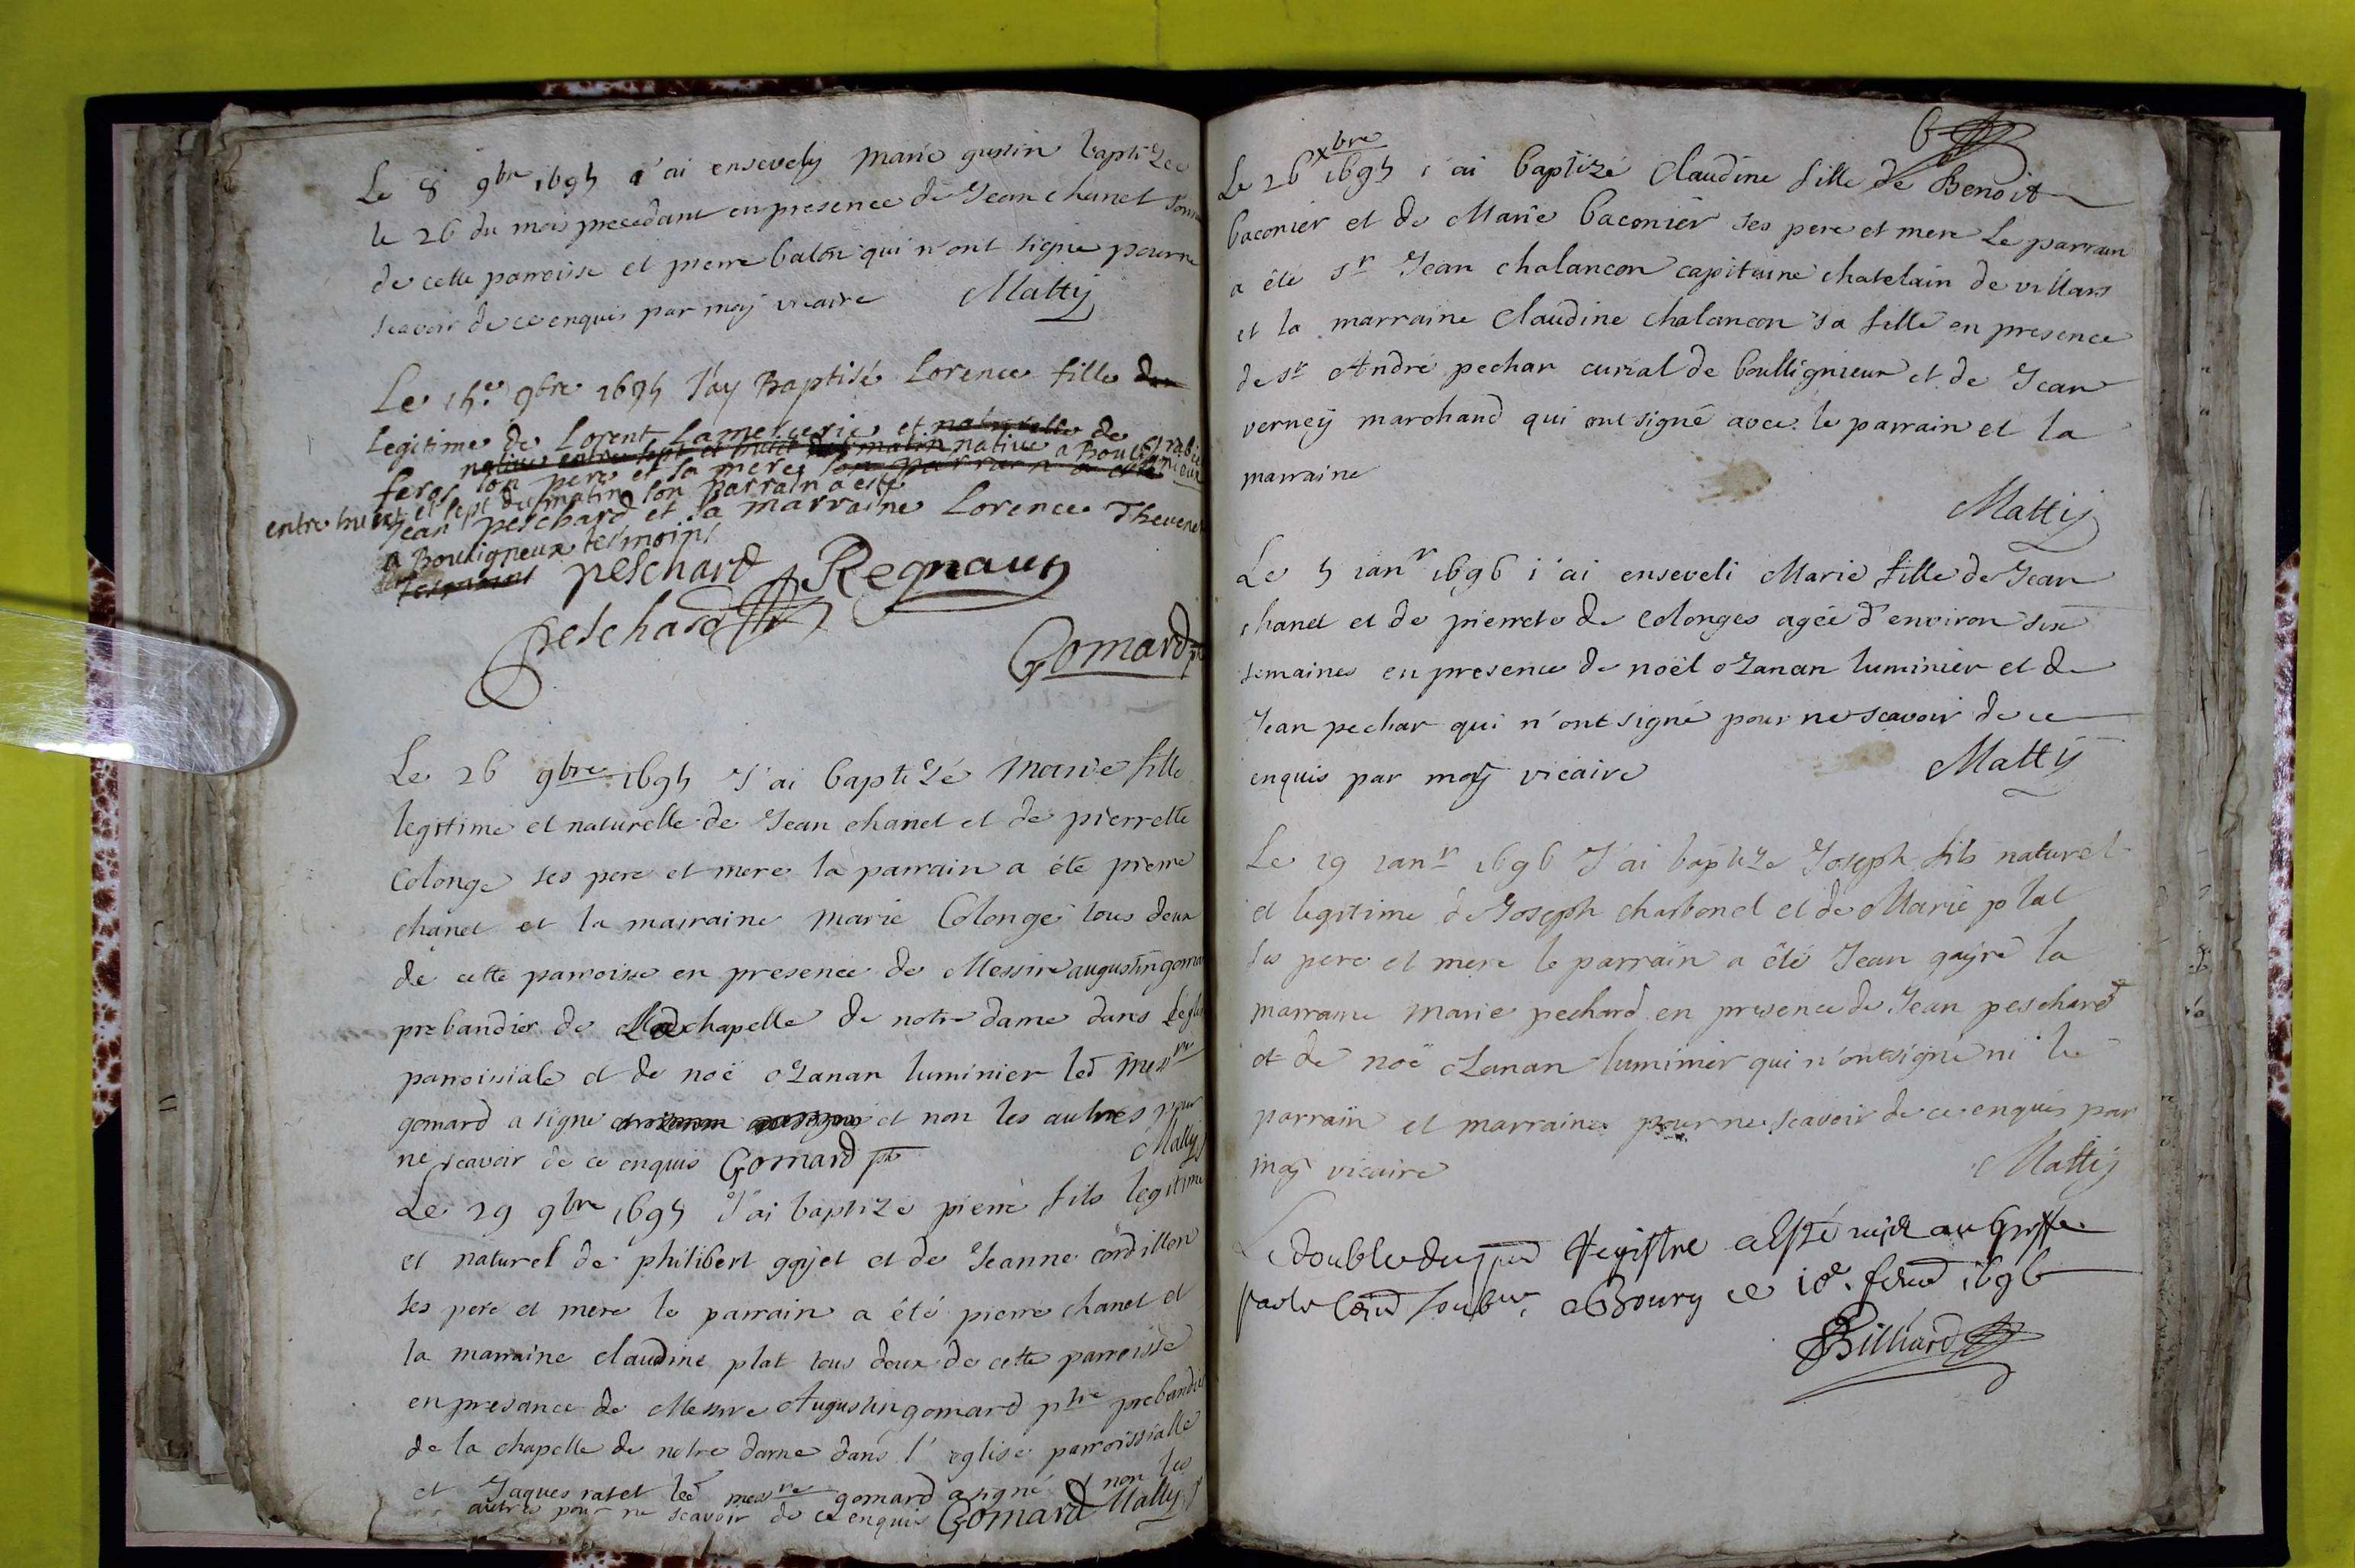 Le 8 9bre 1695 j'ai ensevely Marie gustin baptizee
le 26 du mois precedant en presence de Jean chanet
de cette parroisse et pierre balon qui n'ont signe pour ne
scavoir de ce enquis par moy vicaire Mattÿ
Le 15e 9bre 1695 J'ay Baptisé Lorence fille
Legitime de Lorent Lamercerie et naturelle de
native entre sept et huict du matin native a Bouligneux
feros son pere et sa mere son parrain a esté
entre huict et sept du matin son Parrain a esté
Jean peschard et sa marraine Lorence Thevenet
a Bouligneux tesmoins
tesmoins peschard Regnaud
Peschard
Gomard
Le 26 9bre 1695 J'ai baptizé Marie fille
legitime et naturelle de Jean chanet et de pierrette
Colonge ses pere et mere la parrain a été pierre
chanet et la marraine Marie Colonge tous deux
de cette parroisse en presence de Messire augustin gomar
prebandier de La chapelle de notre dame dans
parroissiale et de noë oZanan luminier led messre
gomard a signe et non les autres pour
ne scavoir de ce enquis Gomard ptre Mattÿ
Le 29 9bre 1695 J'ai baptizé pierre fils legitime
et naturel de philibert goyet et de Jeanne cordillon
ses pere et mere le parrain a été pierre chanet et
la marraine claudine plat tous deux de cette parroisse
en presance de Messire Augustin gomard ptre prebandier
de la chapelle de notre dame dans l'eglise parroissialle
et Jaques ratet led messre gomard a signé & non les
autres pour ne scavoir de ce enquis Gomard Mattÿ
6
Le 26 xbre 1695 j'ai baptizé Claudine fille de Benoit
baconier et de Marie baconier ses pere et mere Le parrain
a été sr Jean chalancon capitaine chatelain de villars
et la marraine Claudine chalancon sa fille en presence
de sr André pechar curial de boullignieux et de Jean
verneÿ marchand qui ont signé avec le parrain et la
marraine
Mattÿ
Le 5 ianr 1696 i'ai enseveli Marie fille de Jean
chanet et de pierrete de Colonges agée d'environ six
semaines en presence de noël oZanan luminier et de
Jean pechar qui n'ont signé pour ne scavoir de ce
enquis par moy vicaire Mattÿ
Le 29 ianr 1696 J'ai baptize Joseph fils naturel
et legitime de Joseph charbonel et de Marie plat
ses pere et mere le parrain a été Jean gayre la
marraine Marie pechard en presence de Jean peschard
et de noë oZanan luminier qui n'ont signé ni le
parrain et marraine pour ne scavoir de ce enquis par
moy vicaire Mattÿ
Le double du pnt Registre a esté mis au Greffe
par le a Bourg ce 18e feud 1696
Billiard